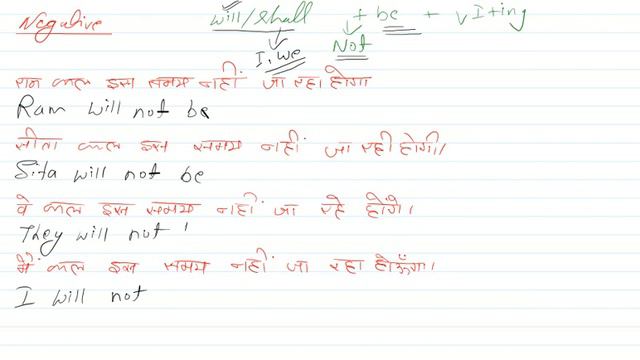 Negative will/shall + be + vI+ing
I, we Not
राम कल इस समय नहीं जा रहा होगा
Ram will not be
सीता कल इस समय नहीं जा रही होगी।
Sita will not be
वे कल इस समय नहीं जा रहे होंगे।
They will not
मैं कल इस समय नहीं जा रहा होऊँगा।
I will not